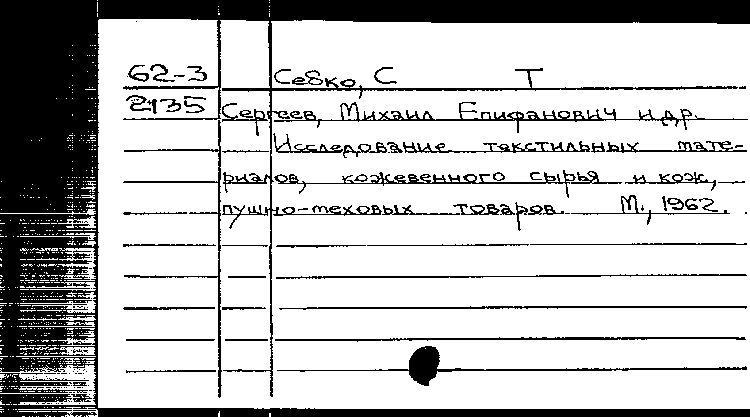 62-3 Себко, С Т
2135 Сергеев, Михаил Епифанович и др.
Исследование текстильных мате-
риалов, кожевенного сырья и кож,
пушно-меховых товаров. М., 1962.